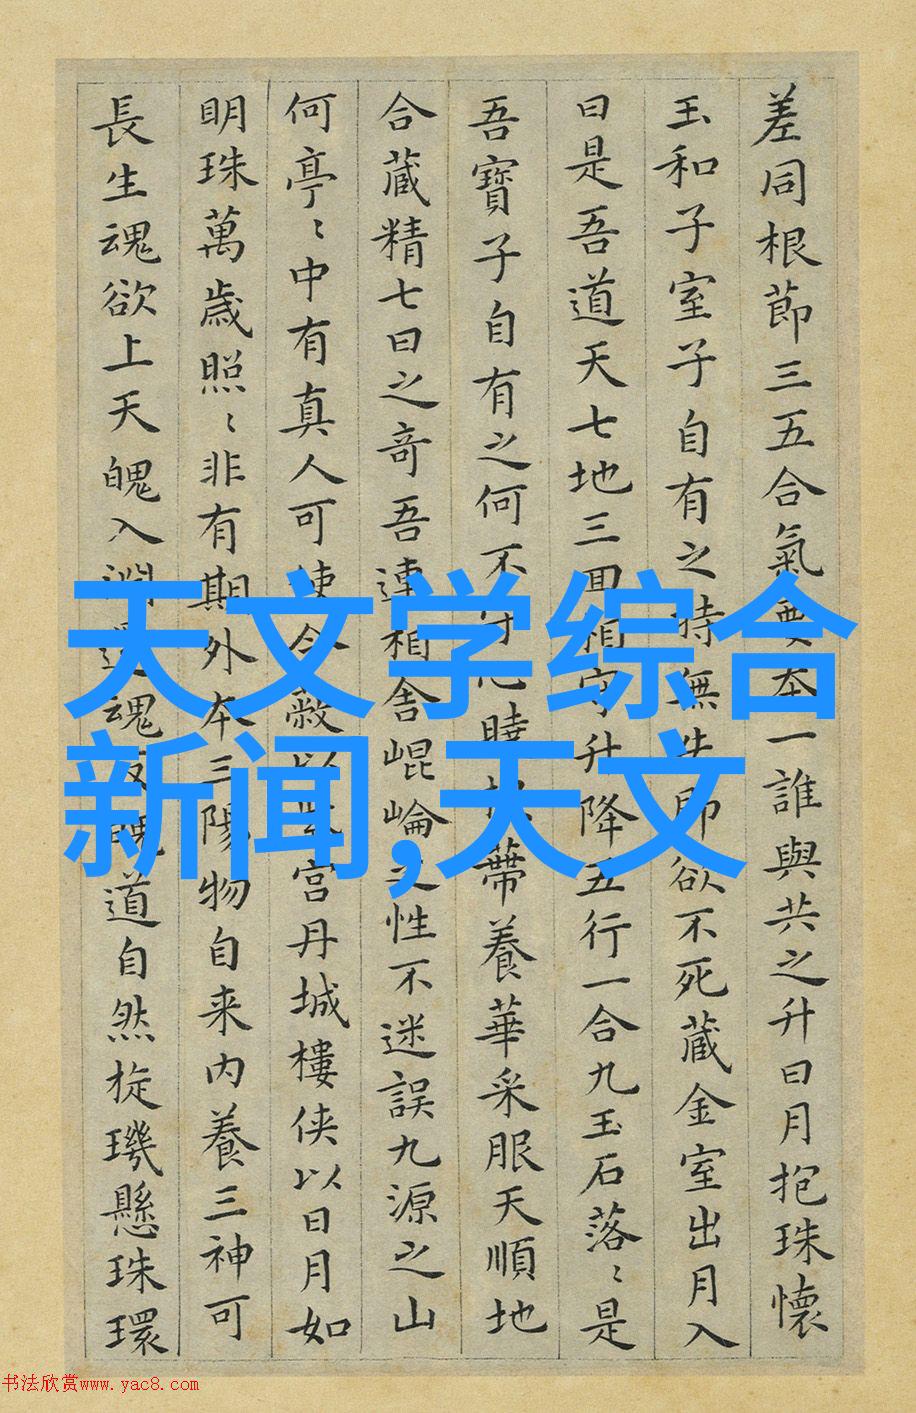 差同根節三五合氣要本一誰與共之升日月抱珠懷
玉和子室子自有之持無失即欲不死藏金室出月入
日是吾道天七地三回相守升降五行一合九玉石落〻是
吾寶子自有之何不守心曉根蔕養華采服天順地
合藏精七日之奇吾連相舍崐崘之性不迷誤九源之山
何亭〻中有真人可使令蔽以紫宮丹城樓俠以日月如
明珠萬歲照〻非有期外本三陽物自来内養三神可
長生魂欲上天魄入淵還魂反魄道自然旋璣懸珠環
天文学综合
新闻,天文
书法欣赏www.yac8.com